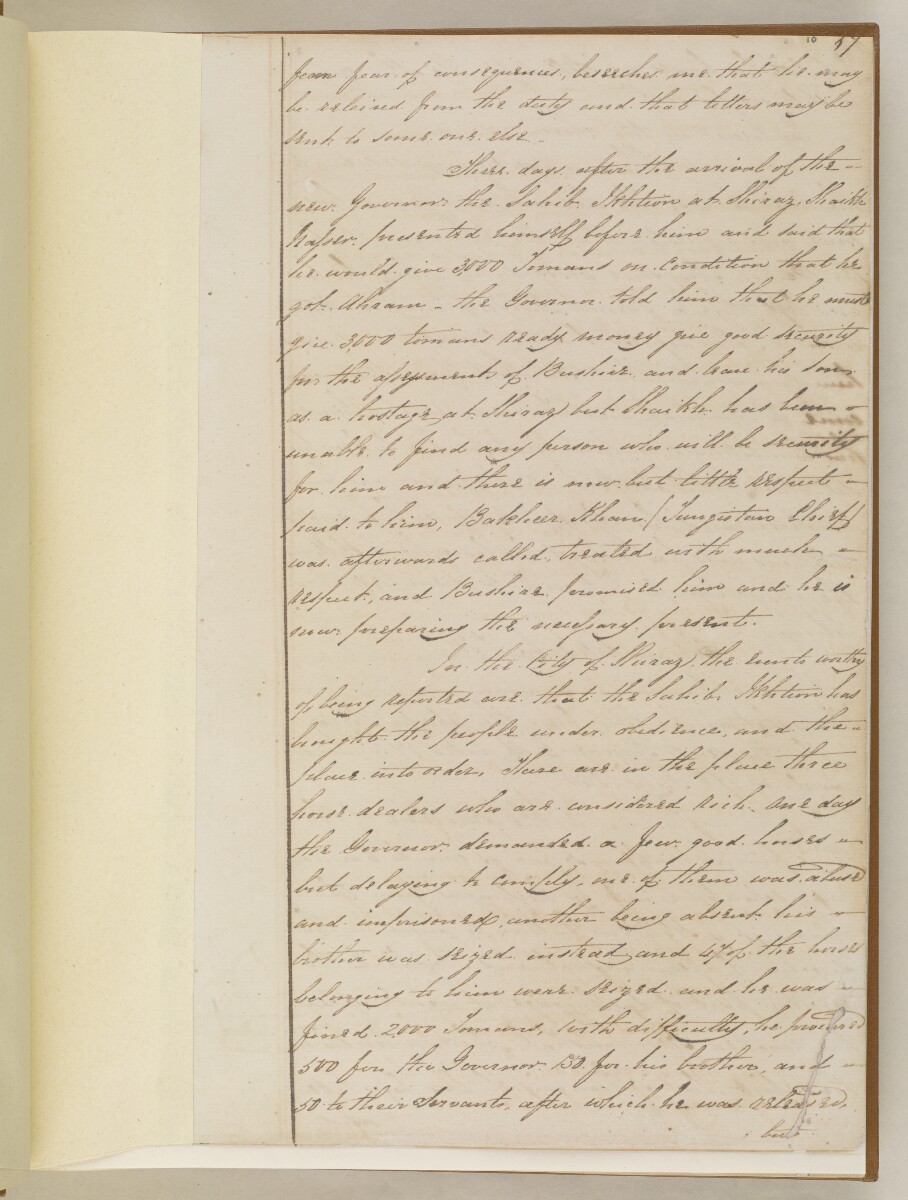 10 57
from fear of consequences, beseeches me that he may
be relieved from the duty and that letters may be
sent to some one else.
Three days after the arrival of the
new Governor the Sahib Ikhtion at Shiraz, Shaikh
Nasser presented himself before him and said that
he would give 3,000 Tomans on condition that he
got Ahram - the Governor told him that he must
give 3,000 tomans ready money give good security
for the assessments of Bushire and leave his son
as a hostage at Shiraz but Shaikh has been
unable to find any person who will be security
for him and there is now but little respect
paid to him, Bakheer Khan (Tungistan Chief)
was afterwards called, treated with much
respect, and Bushire promised him and he is
now preparing the necessary present.
In the City of Shiraz the events worthy
of being reported are that the Sahib Ikhtion has
brought the people under obedience, and the
place into order, There are in the place three
horse dealers who are considered rich one day
the Governor demanded a few good horses
but delaying to comply, one of them was
and imprisoned, another being absent his
brother was seized instead and 47 of the horses
belonging to him were seized and he was
fined 2,000 Tomans, with difficulty he procured
500 for the Governor 150 for his brother, and
50 to their Servants, after which he was released,
but